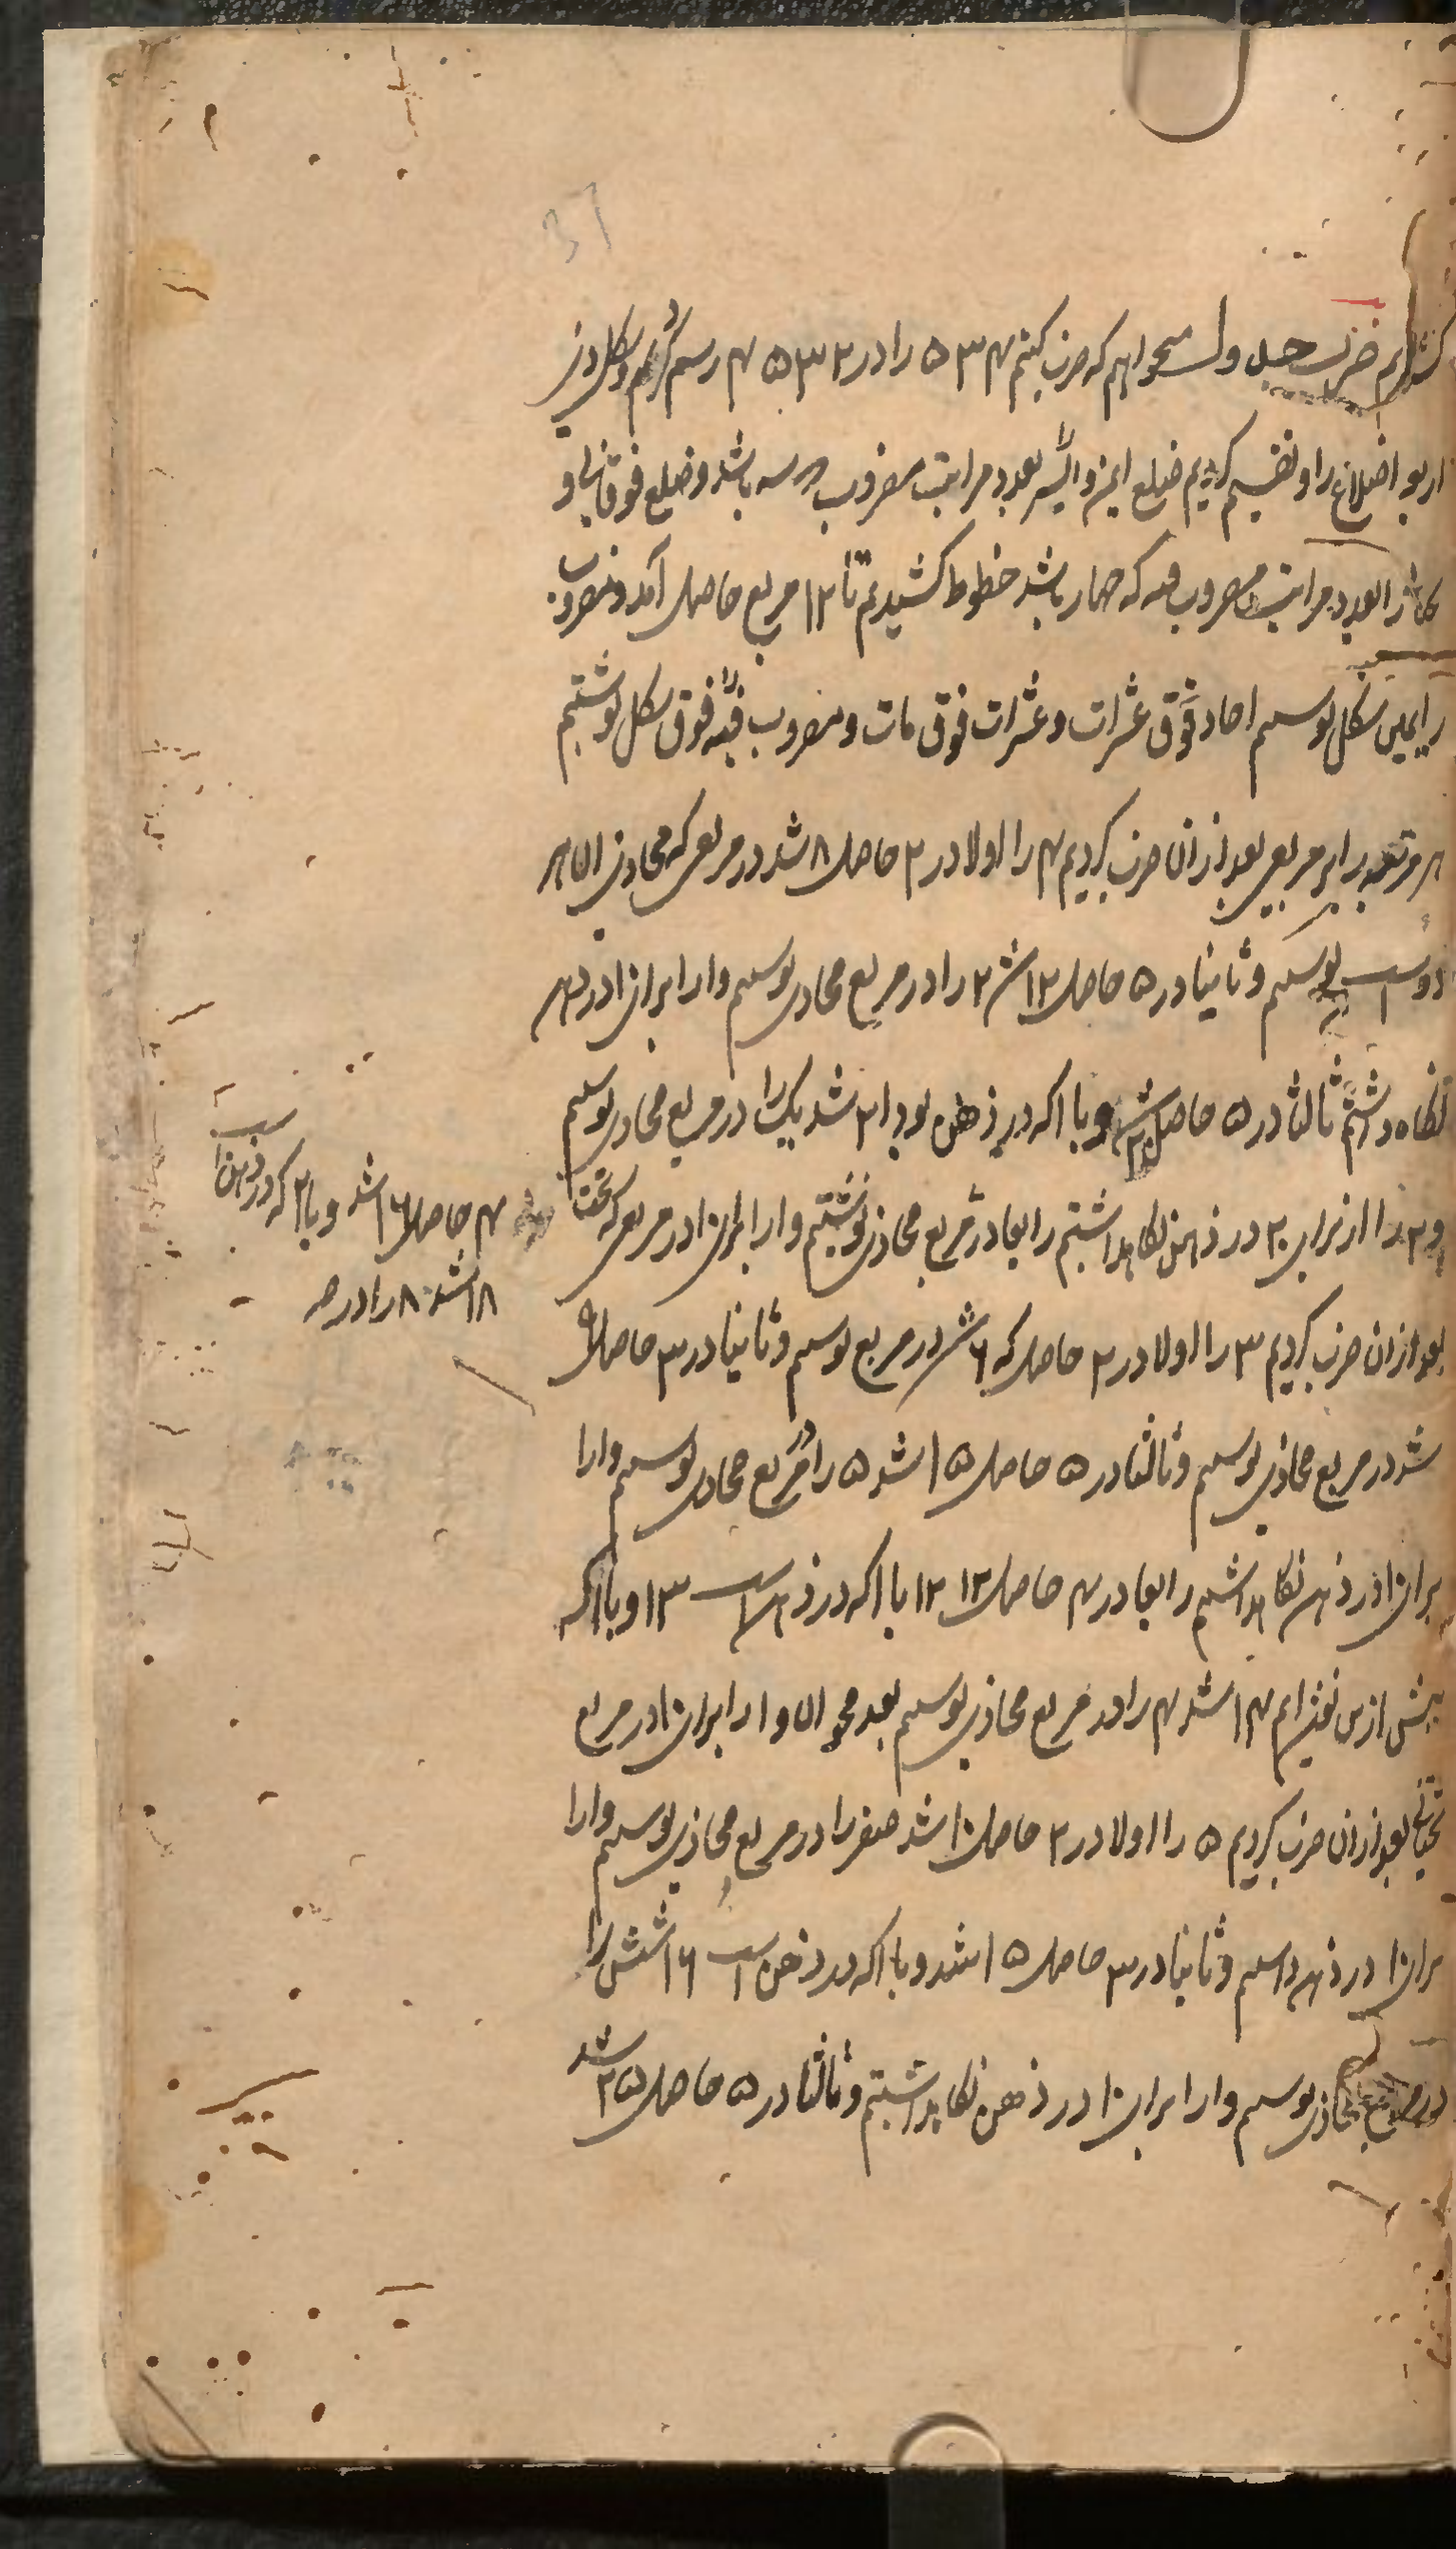 37
ضرب حبل و میخواهیم که ضرب کنیم ۵۳۴ را در ۴۵۳۲ رسم کردیم شکل ذی
اربع اضلاع را و تقسیم کردیم ضلع ایمن و ایسر بعدد مراتب مضروب که سه باشد و ضلع فوقانی و
را بعدد مراتب مضروب فیه که چهار باشد خطوط کشیدیم تا ۱۲ مربع حاصل آمد و مضروب
را بیمین شکل نوشتیم احاد فوق عشرات و عشرات فوق مات و مضروب فیه را فوق شکل نوشتیم
هر مرتبه برابر مربعی بعد ازان ضرب کردیم ۴ را اولا در ۲ حاصل ۸ شد در مربعی که محاذی ان هر
دوست نوشتیم و ثانیا در ۵ حاصل ۱۲ شد ۲ را در مربع محاذی نوشتیم و ا را برای ۱۰ در ذهن
نگاه داشتیم ثالثا در ۵ حاصل ۲۰ شد و با ا که در ذهن بود ۲۱ شد یک را در مربع محاذی نوشتیم
و ۲ را از برای ۲۰ در ذهن نگاهداشتیم رابعا در مربع محاذی نوشتیم و ا را برای ۱۰ در مربعی که تحت
۴ حاصل ۱۶ شد و با ۲ که در ذهن است
۱۸ شد ۸ را در مر
بعد ازان ضرب کردیم ۳ را اولا در ۲ حاصل که ۶ شد در مربع نوشتیم و ثانیا در ۳ حاصل ۹
شد در مربع محاذی نوشتیم و ثالثا در ۵ حاصل ۱۵ شد ۵ را در مربع محاذی نوشتیم و ا را
برای ۱۰ در ذهن نگاهداشتیم رابعا در ۴ حاصل ۱۲ ۱۲ با ا که در ذهن است ۱۳ و با ا که
پیش ازین نوشته ایم ۱۴ شد ۴ را در مربع محاذی نوشتیم بعد محو ان و ا را برای ۱۰ در مربع
تحتانی بعد ازان ضرب کردیم ۵ را اولا در ۲ حاصل ۱۰ شد صفر را در مربع محاذی نوشتیم و ا را
برای ۱۰ در ذهن داشتیم و ثانیا در ۳ حاصل ۱۵ شد و با ا که در ذهن است ۱۶ شش را
در مربع محاذی نوشتیم و ا را برای ۱۰ در ذهن نگاهداشتیم و ثالثا در ۵ حاصل ۲۵ شد